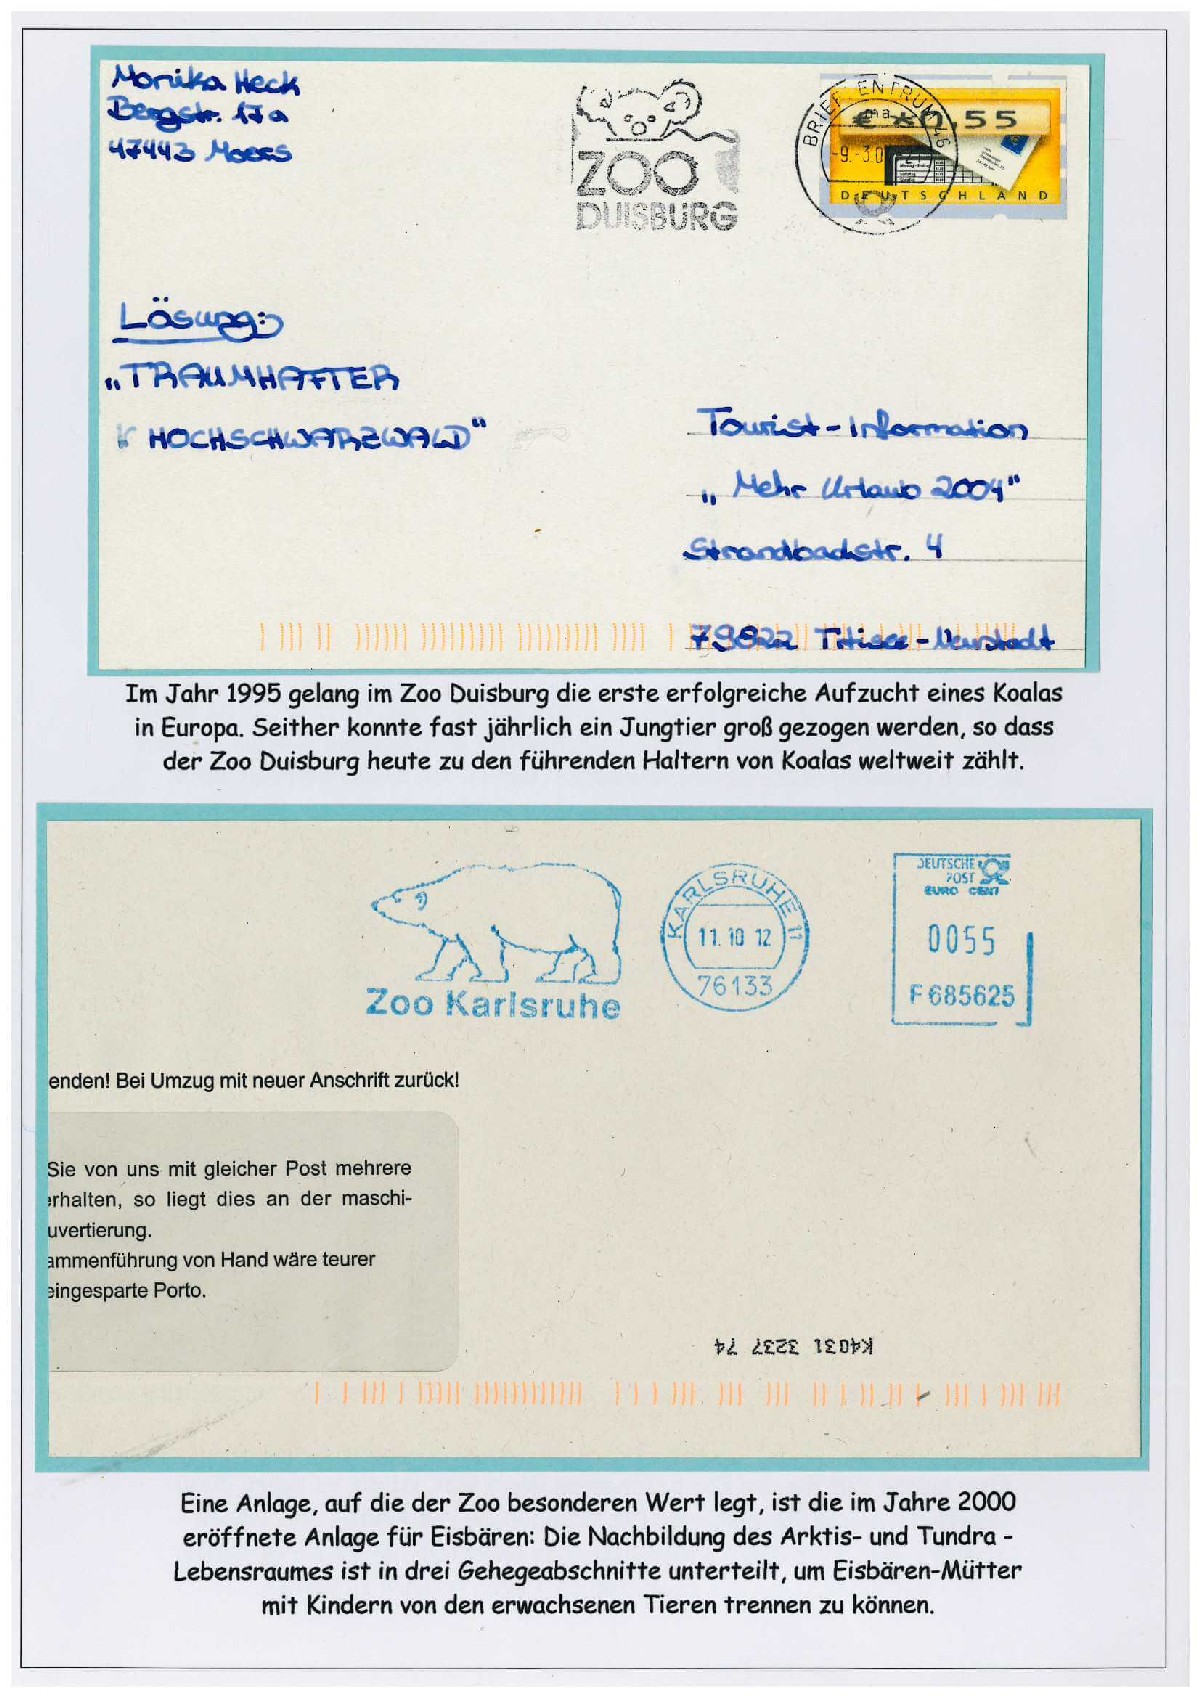 Monika Heck
Bergstr. 17a
47443 Moers
ZOO
DUISBURG
BRIEFZENTRUM 46
ma
-9.-3.0
€ *0,55
DEUTSCHLAND
Lösung:
„TRAUMHAFTER
HOCHSCHWARZWALD"
Tourist-Information
„Mehr Urlaub 2004"
Strandbadstr. 4
79822 Titisee-Neustadt
Im Jahr 1995 gelang im Zoo Duisburg die erste erfolgreiche Aufzucht eines Koalas
in Europa. Seither konnte fast jährlich ein Jungtier groß gezogen werden, so dass
der Zoo Duisburg heute zu den führenden Haltern von Koalas weltweit zählt.
Zoo Karlsruhe
KARLSRUHE 11
11.10 12
76133
DEUTSCHE
POST
EURO CENT
0055
F685625
enden! Bei Umzug mit neuer Anschrift zurück!
Sie von uns mit gleicher Post mehrere
erhalten, so liegt dies an der maschi-
uvertierung.
ammenführung von Hand wäre teurer
eingesparte Porto.
K4031 3237 74
Eine Anlage, auf die der Zoo besonderen Wert legt, ist die im Jahre 2000
eröffnete Anlage für Eisbären: Die Nachbildung des Arktis- und Tundra -
Lebensraumes ist in drei Gehegeabschnitte unterteilt, um Eisbären-Mütter
mit Kindern von den erwachsenen Tieren trennen zu können.